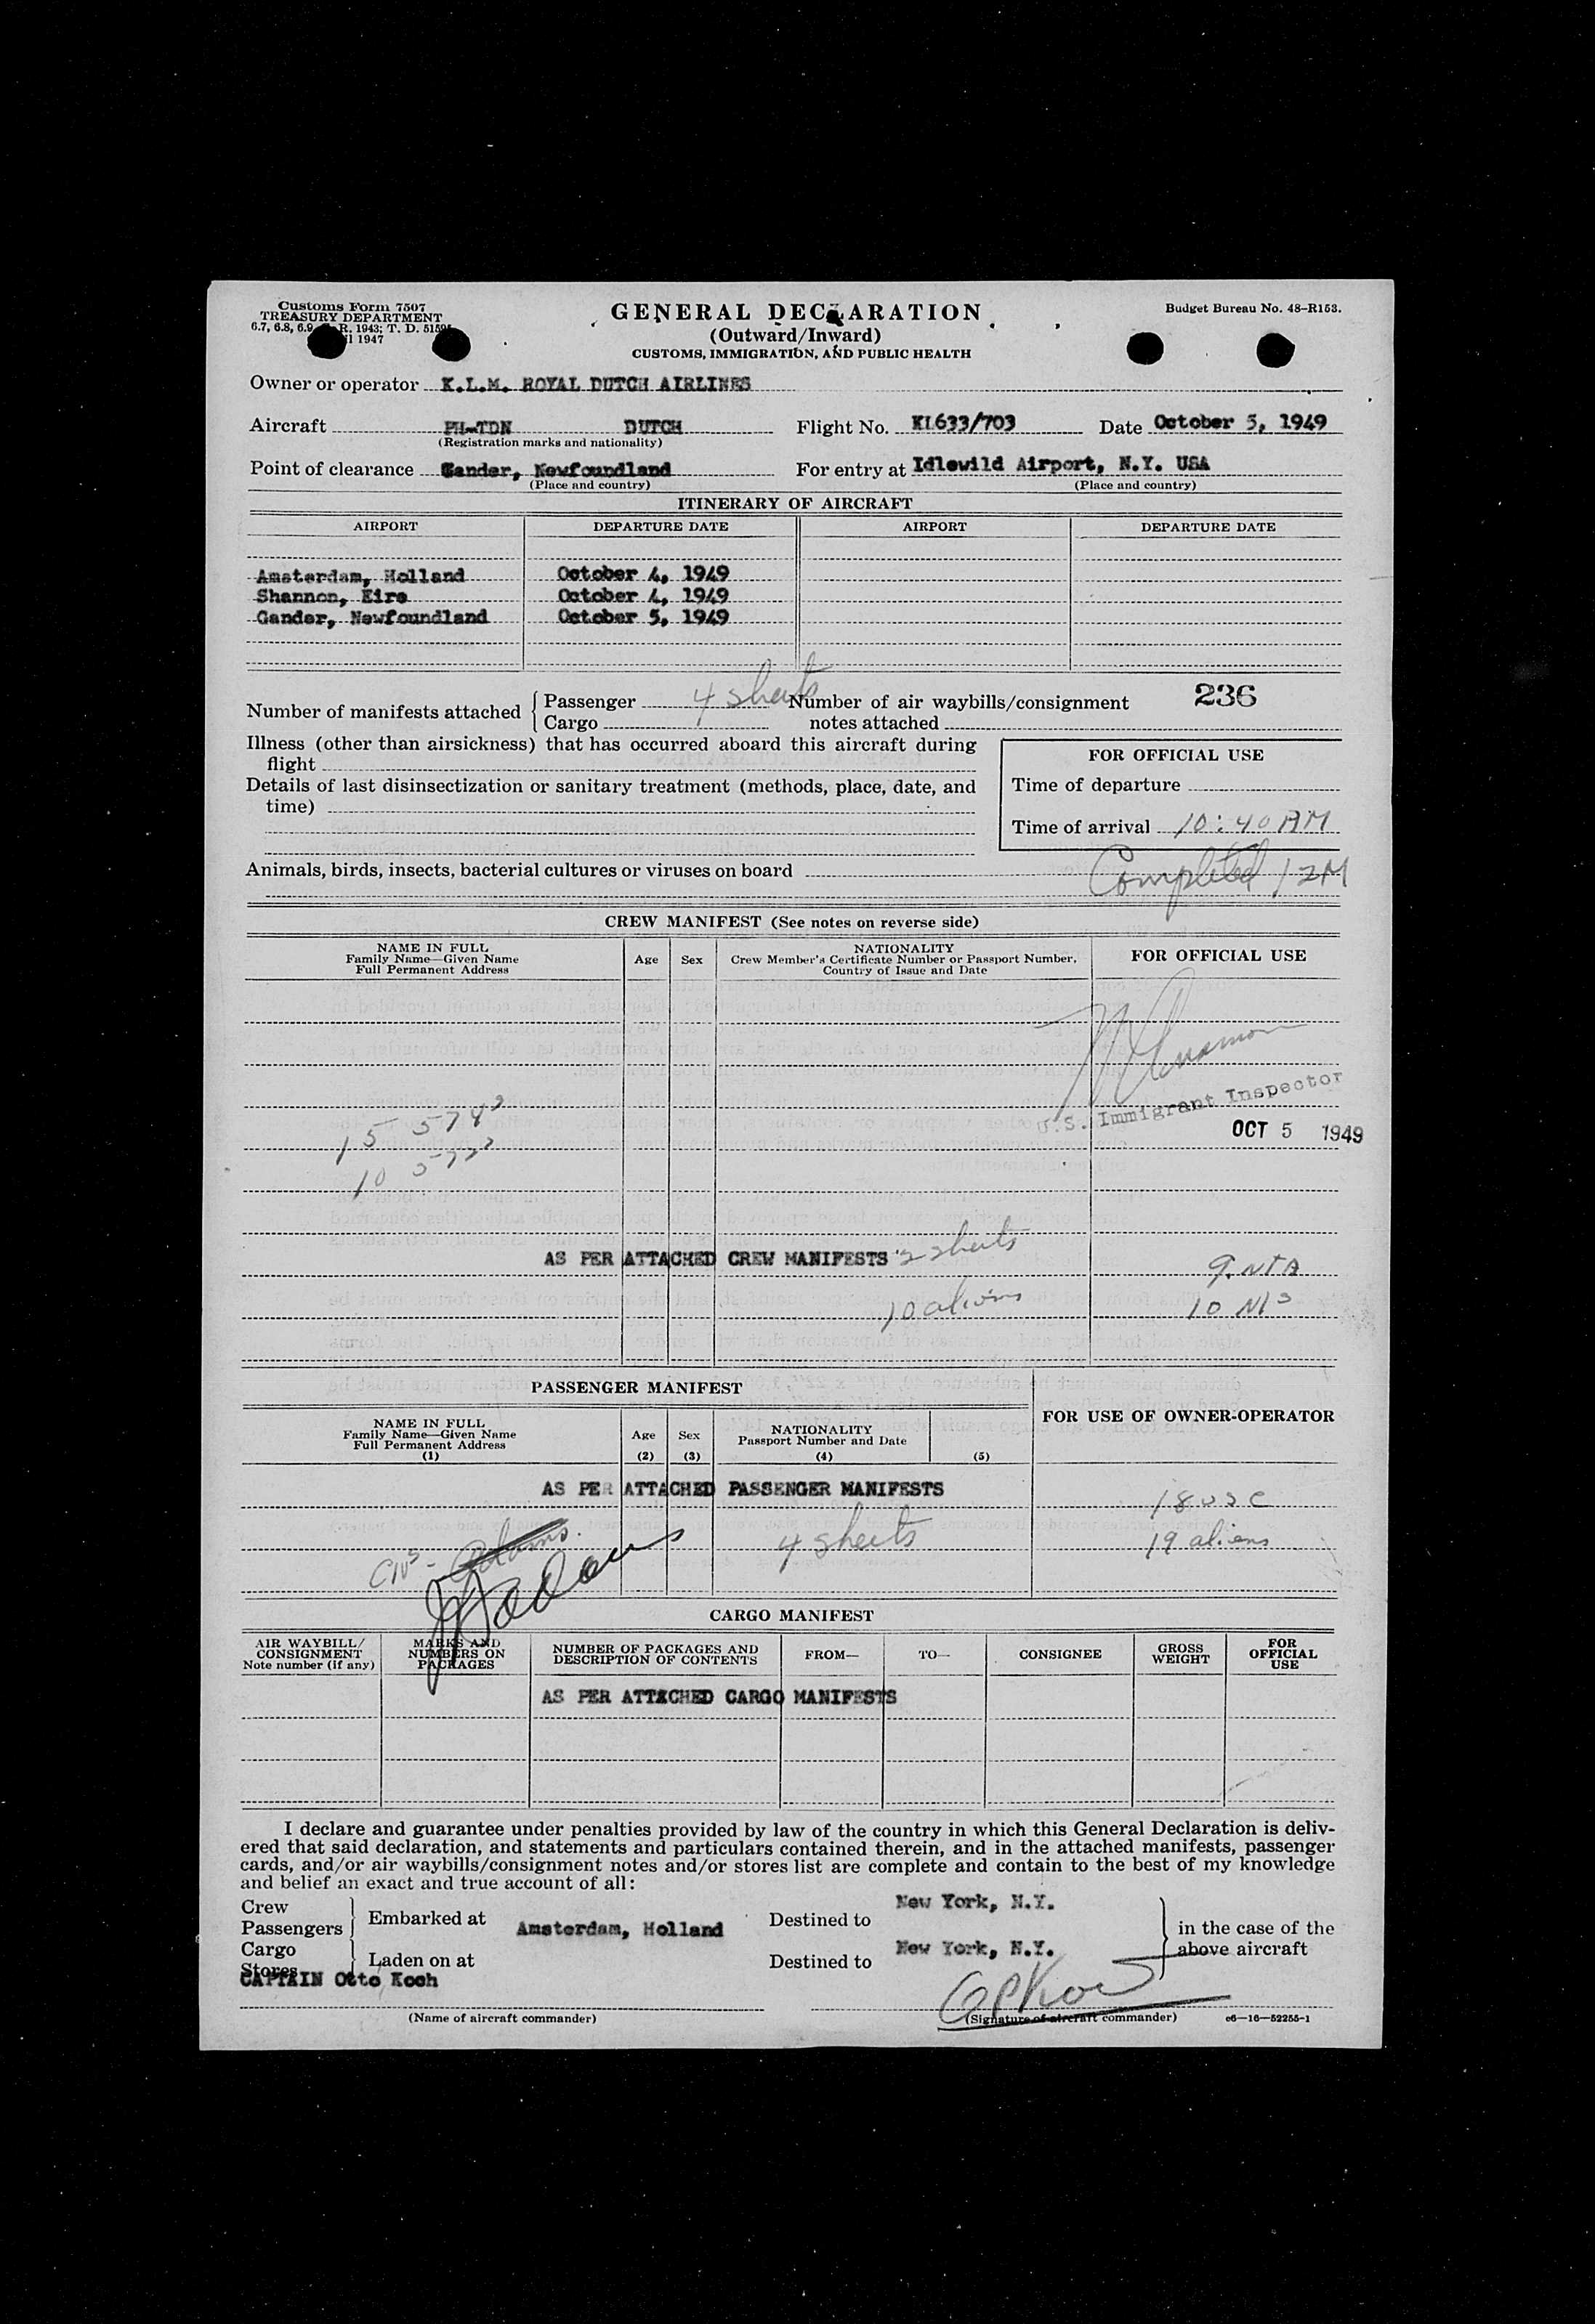 Customs Form 7507
TREASURY DEPARTMENT
6.7, 6.8, 6.9, R. 1943; T. D. 51595
1947
GENERAL DECLARATION
(Outward/Inward)
CUSTOMS, IMMIGRATION, AND PUBLIC HEALTH
Budget Bureau No. 48–R153.
Owner or operator K.L.M. ROYAL DUTCH AIRLINES
Aircraft PH-TDN DUTCH Flight No. KL633/703 Date October 5, 1949
(Registration marks and nationality)
Point of clearance Gander, Newfoundland For entry at Idlewild Airport, N.Y. USA
(Place and country) (Place and country)
ITINERARY OF AIRCRAFT
AIRPORT DEPARTURE DATE AIRPORT DEPARTURE DATE
Amsterdam, Holland October 4, 1949
Shannon, Eire October 4, 1949
Gander, Newfoundland October 5, 1949
Number of manifests attached { Passenger 4 sheets Number of air waybills/consignment 236
Cargo notes attached
Illness (other than airsickness) that has occurred aboard this aircraft during
flight
FOR OFFICIAL USE
Details of last disinsectization or sanitary treatment (methods, place, date, and
time)
Time of departure
Time of arrival 10:40 AM
Animals, birds, insects, bacterial cultures or viruses on board
Completed 12M
CREW MANIFEST (See notes on reverse side)
NAME IN FULL
Family Name—Given Name
Full Permanent Address
Age
Sex
NATIONALITY
Crew Member's Certificate Number or Passport Number.
Country of Issue and Date
FOR OFFICIAL USE
U.S. Immigrant Inspector
OCT 5 1949
15
10
AS PER ATTACHED CREW MANIFESTS 2 sheets
10 aliens
10
PASSENGER MANIFEST
FOR USE OF OWNER-OPERATOR
NAME IN FULL
Family Name—Given Name
Full Permanent Address
(1)
Age
(2)
Sex
(3)
NATIONALITY
Passport Number and Date
(4)
(5)
AS PER ATTACHED PASSENGER MANIFESTS
18 USC
4 sheets
19 aliens
Adams
CARGO MANIFEST
AIR WAYBILL/
CONSIGNMENT
Note number (if any)
MARKS AND
NUMBERS ON
PACKAGES
NUMBER OF PACKAGES AND
DESCRIPTION OF CONTENTS
FROM—
TO—
CONSIGNEE
GROSS
WEIGHT
FOR
OFFICIAL
USE
AS PER ATTACHED CARGO MANIFESTS
I declare and guarantee under penalties provided by law of the country in which this General Declaration is deliv-
ered that said declaration, and statements and particulars contained therein, and in the attached manifests, passenger
cards, and/or air waybills/consignment notes and/or stores list are complete and contain to the best of my knowledge
and belief an exact and true account of all:
Crew
Passengers } Embarked at Amsterdam, Holland Destined to New York, N.Y.
in the case of the
above aircraft
Cargo
Stores } Laden on at Destined to New York, N.Y.
CAPTAIN Otto Koch
(Name of aircraft commander)
(Signature of aircraft commander)
c6—16—52255-1